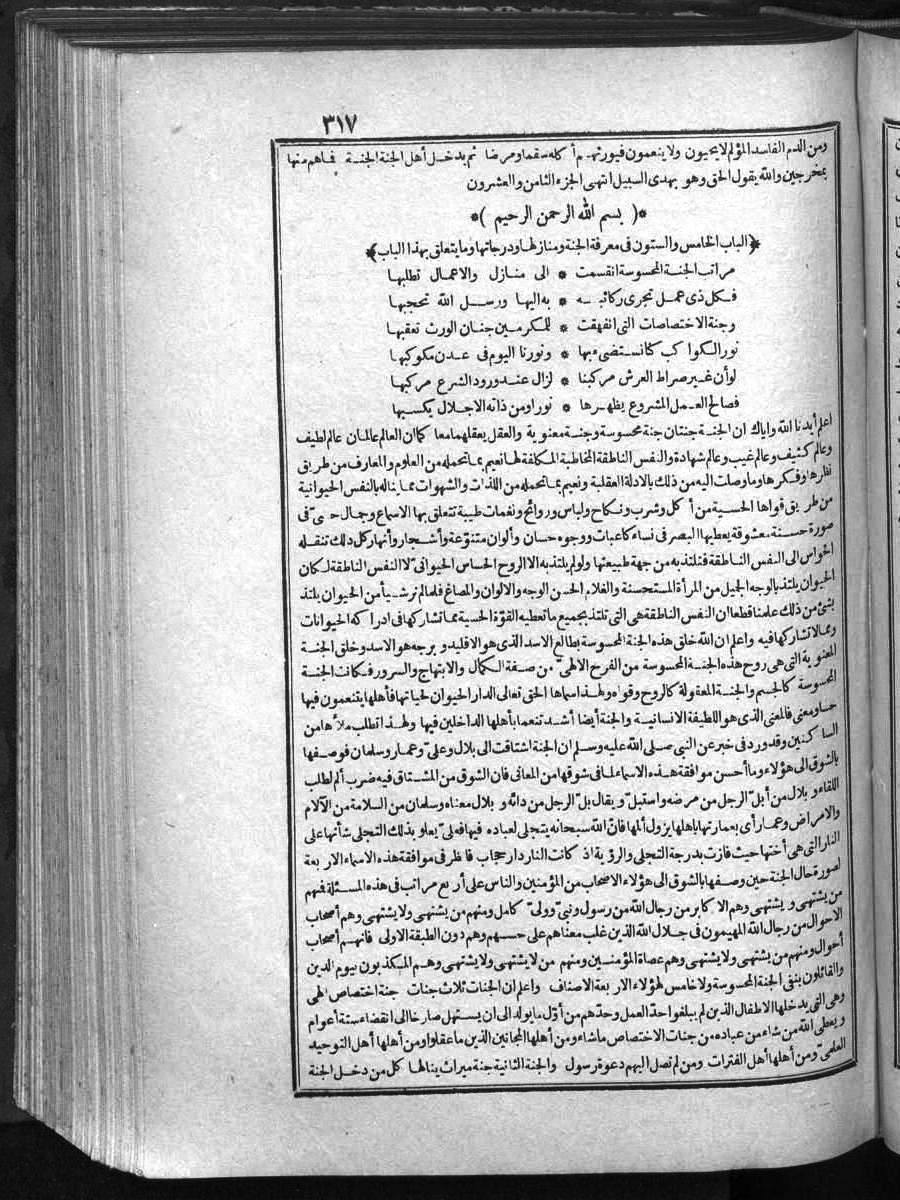 ٣١٧
ومن الدم الفاسد المؤلم لا يحيون ولا ينعمون فيورثهم أكله سقما ومرضا ثم يدخل أهل الجنة الجنة فماهم منها
بمخرجين والله يقول الحق وهو يهدى السبيل انتهى الجزء الثامن والعشرون
*( بسم الله الرحمن الرحيم )*
﴿الباب الخامس والستون فى معرفة الجنة ومنازلها ودرجاتها وما يتعلق بهذا الباب﴾
مراتب الجنة المحسوسة انقسمت * الى منازل والاعمال تطلبها
فكل ذى عمل تجرى ركائبه * به اليها ورسل الله تحجبها
وجنة الاختصاصات التى انفهقت * للمكرمين جنان الورث تعقبها
نور الكواكب كنا نستضىء بها * ونورنا اليوم فى عدن مكوكبها
لو أن غير صراط العرش مركبنا * لزال عند ورود الشرع مركبها
فصالح العمل المشروع يظهرها * نورا ومن ذاته الاجلال يكسبها
اعلم أيدنا الله واياك ان الجنة جنتان جنة محسوسة وجنة معنوية والعقل يعقلهما معا كما ان العالم عالمان عالم لطيف
وعالم كثيف وعالم غيب وعالم شهادة والنفس الناطقة المخاطبة المكلفة لها نعيم بما تحمله من العلوم والمعارف من طريق
نظرها وفكرها وما وصلت اليه من ذلك بالادلة العقلية ونعيم بما تحمله من اللذات والشهوات مما يناله بالنفس الحيوانية
من طريق قواها الحسية من أكل وشرب ونكاح ولباس وروائح ونغمات طيبة تتعلق بها الاسماع وجمال حسىّ فى
صورة حسنة معشوقة يعطيها البصر فى نساء كاعبات ووجوه حسان وألوان متنوّعة وأشجار وأنهار كل ذلك تنقله
الحواس الى النفس الناطقة فتلتذ به من جهة طبيعتها ولو لم يلتذ به الا الروح الحساس الحيوانى لا النفس الناطقة لكان
الحيوان يلتذ بالوجه الجميل من المرأة المستحسنة والغلام الحسن الوجه والالوان والمصاغ فلما لم نر شيأ من الحيوان يلتذ
بشئ من ذلك علمنا قطعا ان النفس الناطقة هى التى تلتذ بجميع ما تعطيه القوّة الحسية مما تشاركها فى ادراكه الحيوانات
ومما لا تشاركها فيه واعلم ان الله خلق هذه الجنة المحسوسة بطالع الاسد الذى هو الاقليد وبرجه هو الاسد وخلق الجنة
المعنوية التى هى روح هذه الجنة المحسوسة من الفرح الالهىّ من صفة الكمال والابتهاج والسرور فكانت الجنة
المحسوسة كالجسم والجنة المعقولة كالروح وقواه ولهذا سماها الحق تعالى الدار الحيوان لحياتها فأهلها يتنعمون فيها
حسا ومعنى فالمعنى الذى هو اللطيفة الانسانية والجنة أيضا أشد تنعما بأهلها الداخلين فيها ولهذا تطلب ملأها من
الساكنين وقد ورد فى خبر عن النبى صلى الله عليه وسلم ان الجنة اشتاقت الى بلال وعلىّ وعمار وسلمان فوصفها
بالشوق الى هؤلاء وما أحسن موافقة هذه الاسماء لما فى شوقها من المعانى فان الشوق من المشتاق فيه ضرب ألم لطلب
اللقاء وبلال من أبلّ الرجل من مرضه واستبلّ ويقال بلّ الرجل من دائه وبلال معناه وسلمان من السلامة من الآلام
والامراض وعمار أى بعمارتها باهلها يزول ألمها فانّ الله سبحانه يتجلى لعباده فيها فعلىّ يعلو بذلك التجلى شأنها على
النار التى هى أختها حيث فازت بدرجة التجلى والرؤية اذ كانت النار دار حجاب فانظر فى موافقة هذه الاسماء الاربعة
لصورة حال الجنة حين وصفها بالشوق الى هؤلاء الاصحاب من المؤمنين والناس على أربع مراتب فى هذه المسئلة فمنهم
من يشتهى ويشتهى وهم الاكابر من رجال الله من رسول ونبىّ وولىّ كامل ومنهم من يشتهى ولا يشتهى وهم أصحاب
الاحوال من رجال الله المهيمون فى جلال الله الذين غلب معناهم على حسهم وهم دون الطبقة الاولى فانهم أصحاب
أحوال ومنهم من يشتهى ولا يشتهى وهم عصاة المؤمنين ومنهم من لا يشتهى ولا يشتهى وهم المكذبون بيوم الدين
والقائلون بنفى الجنة المحسوسة ولا خامس لهؤلاء الاربعة الاصناف واعلم ان الجنات ثلاث جنات جنة اختصاص الهى
وهى التى يدخلها الاطفال الذين لم يبلغوا حدّ العمل وحدّهم من أوّل ما يولد الى ان يستهل صارخا الى انقضاء ستة أعوام
ويعطى الله من شاء من عباده من جنات الاختصاص ما شاء ومن أهلها المجانين الذين ما عقلوا ومن أهلها أهل التوحيد
العلمىّ ومن أهلها أهل الفترات ومن لم تصل اليهم دعوة رسول والجنة الثانية جنة ميراث ينالها كل من دخل الجنة